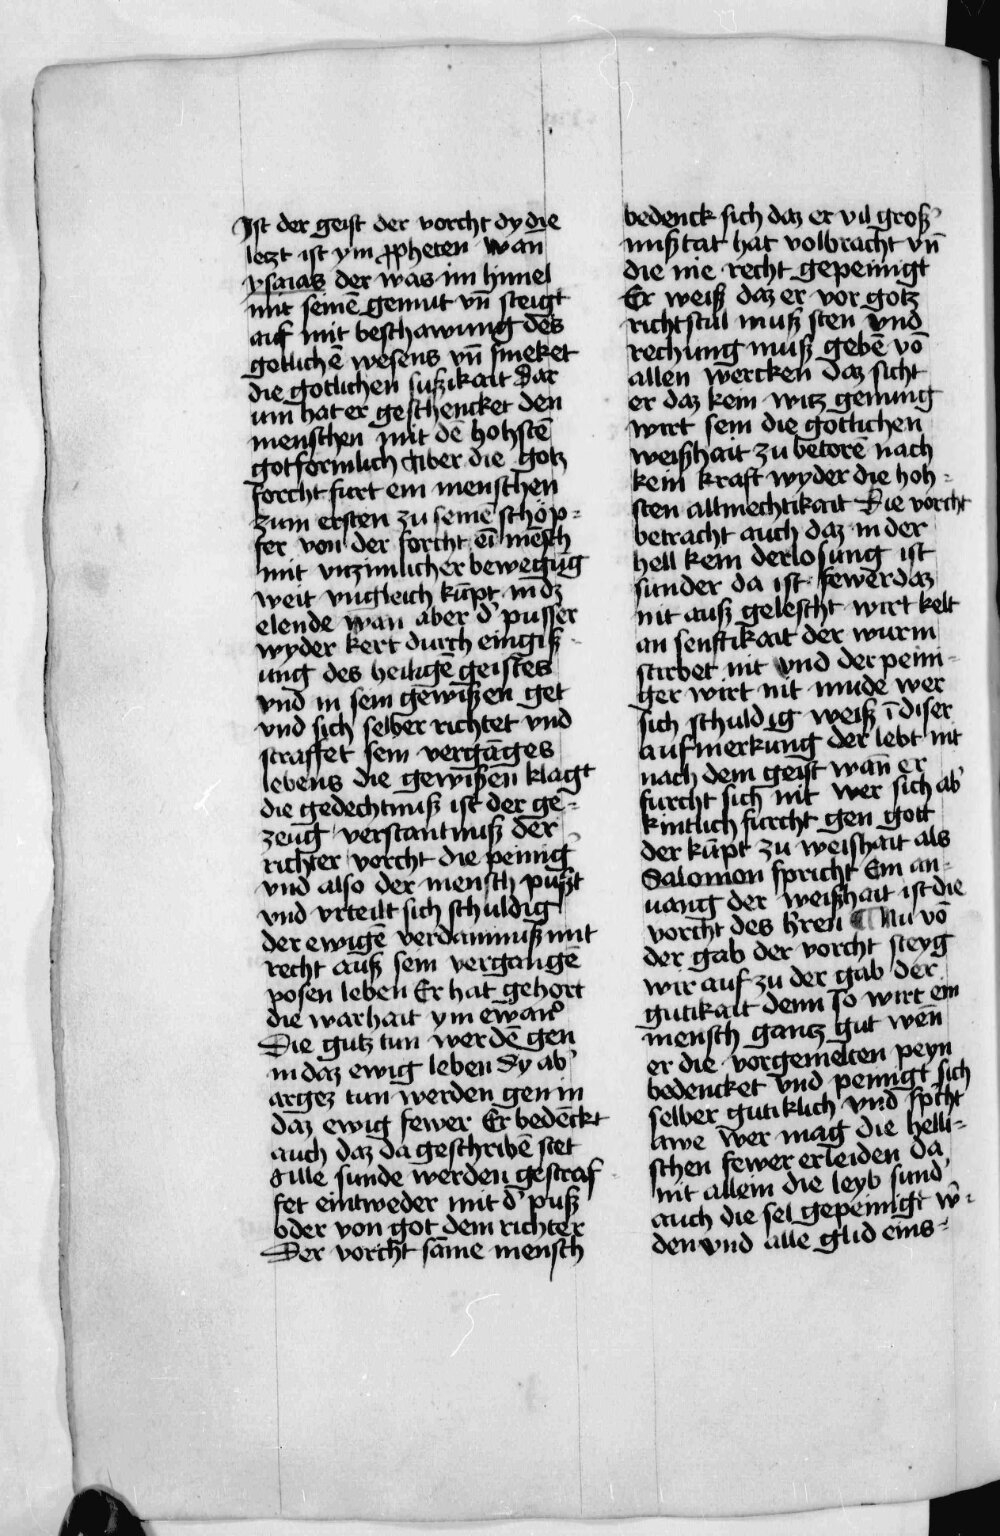 Ist der geist der vorcht dy die
leczt ist ym ꝓpheten wan̄
ysaias der was im himel
mit seinē gemut vn̄ steigt
auf mit beschawung des
gotlichē wesens vn̄ smeket
die gotlichen sußikait Dar
um hat er geschencket den
menschen mit dē hohstē
gotformlich Aber die gotz
forcht furt ein menschen
zum ersten zu seinē schöp-
fer von der forcht ei mēsch
mit vnzimlicher bewegūg
weit vngleich kūpt in dz
elende wan̄ aber d' pusser
wyder kert durch eingiß-
ung des heiligē geistes
vnd in sein gewißen get
vnd sich selber richtet vnd
straffet sein vergāges
lebens die gewißen klagt
die gedechtnuß ist der ge-
zeug verstantnuß der
richter vorcht die peinig'
vnd also der mensch pußt
vnd vrteilt sich schuldig
der ewigē verdamnuß mit
recht auß sein vergangē
posen leben Er hat gehort
die warhait ym ewan°
Die gutz tun werdē gen
in daz ewig leben Dy ab'
argez tun werden gen in
daz ewig fewer Er bedēckt
auch daz da geschribē stet
Alle sunde werden gestraf
fet eintweder mit d' puß
oder von got dem richter
Der vorcht same mensch
bedenck sich daz er vil groß'
mißtat hat volbracht vn̄
die nie recht gepeinigt
Er weiß daz er vor gotz
richtstul muß sten vnd
rechung muß gebē vō
allen wercken daz sicht
er daz kein witz genung
wirt sein die gotlichen
weißhait zu betorē nach
kein kraft wyder die hoh-
sten allmechtikait Die vorcht
betracht auch daz in der
hell kein derlosung ist
sunder da ist fewer daz
nit auß gelescht wirt kelt
an senftikait der wurm
stirbet nit vnd der peini-
ger wirt nit mude wer
sich schuldig weiß ī diser
aufmerkung der lebt nit
nach dem geist wan̄ er
furcht sich nit wer sich ab'
kintlich furcht gen gott
der kūpt zu weishait als
Salomon spricht Ein an-
uang der weißhait ist die
vorcht des h̄ren ¶ Nu vō
der gab der vorcht steyg
wir auf zu der gab der
gutikait denn so wirt ein
mensch gantz gut wēn
er die vorgemelten peyn
bedencket vnd peinigt sich
selber gutiklich vnd sp̄cht
awe wer mag die helli-
schen fewer erleiden da
nit allein die leyb sund'
auch die sel gepeinigt w'-
den vnd alle glid eins-